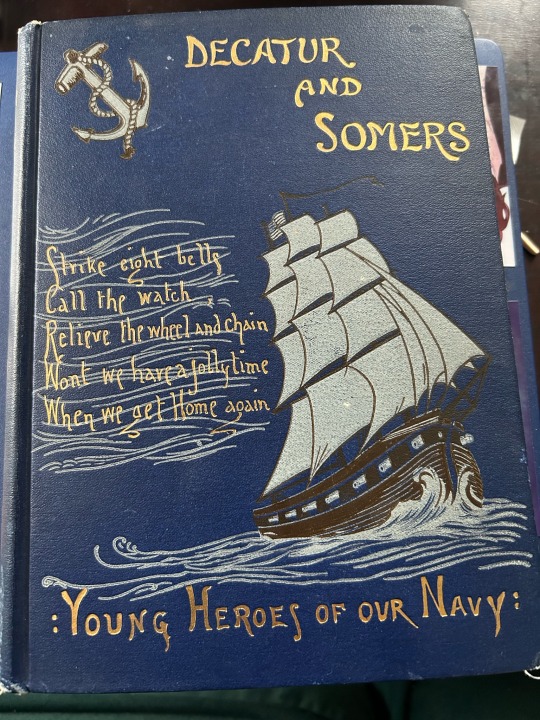 DECATUR
AND
SOMERS
Strike eight bells
Call the watch
Relieve the wheel and chain
Wont we have a jolly time
When we get Home again
:YOUNG HEROES OF OUR NAVY: